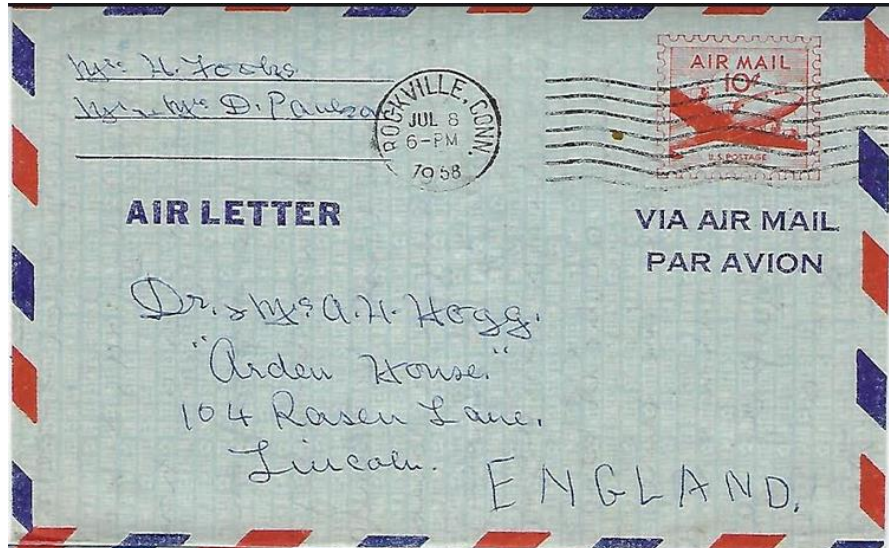 Mrs H. Fooks
Mr & Mrs D. Paulson
ROCKVILLE, CONN.
JUL 8
6-PM
1958
AIR MAIL
10¢
U.S. POSTAGE
AIR LETTER
VIA AIR MAIL
PAR AVION
Dr. & Mrs A. H. Hogg.
"Arden House."
104 Rasen Lane.
Lincoln.
ENGLAND.